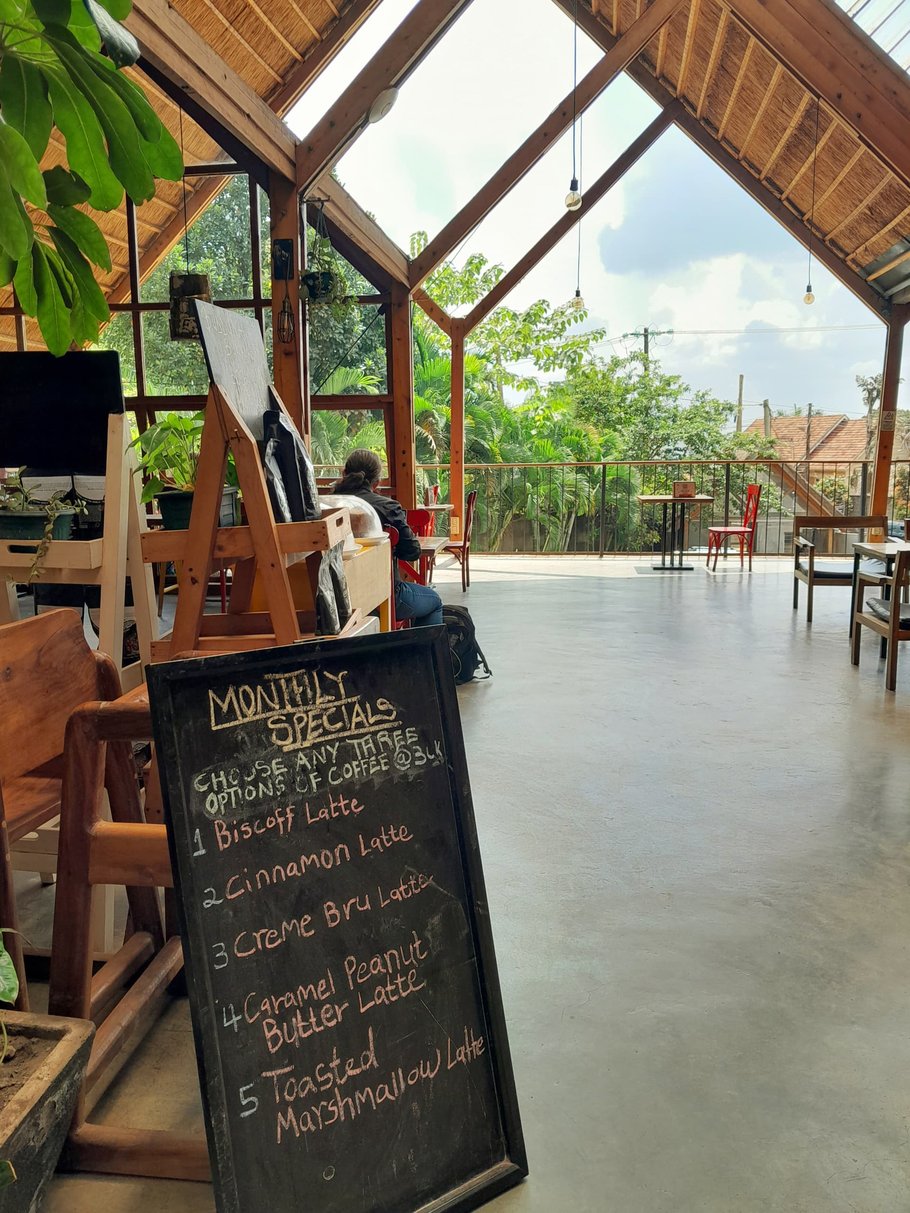 MONTHLY
SPECIALS
CHOOSE ANY THREE
OPTIONS OF COFFEE @34K
1 Biscoff Latte
2 Cinnamon Latte
3 Creme Bru Latte
4 Caramel Peanut
Butter Latte
5 Toasted
Marshmallow Latte